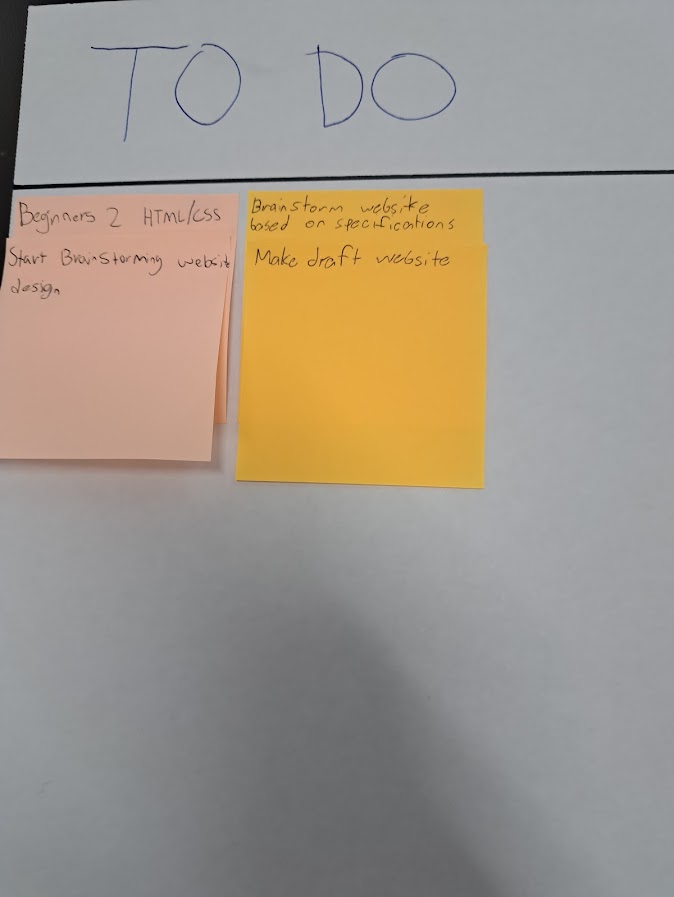 TO DO
Beginners 2 HTML/CSS
Start Brainstorming website
design
Brainstorm website
based on specifications
Make draft website